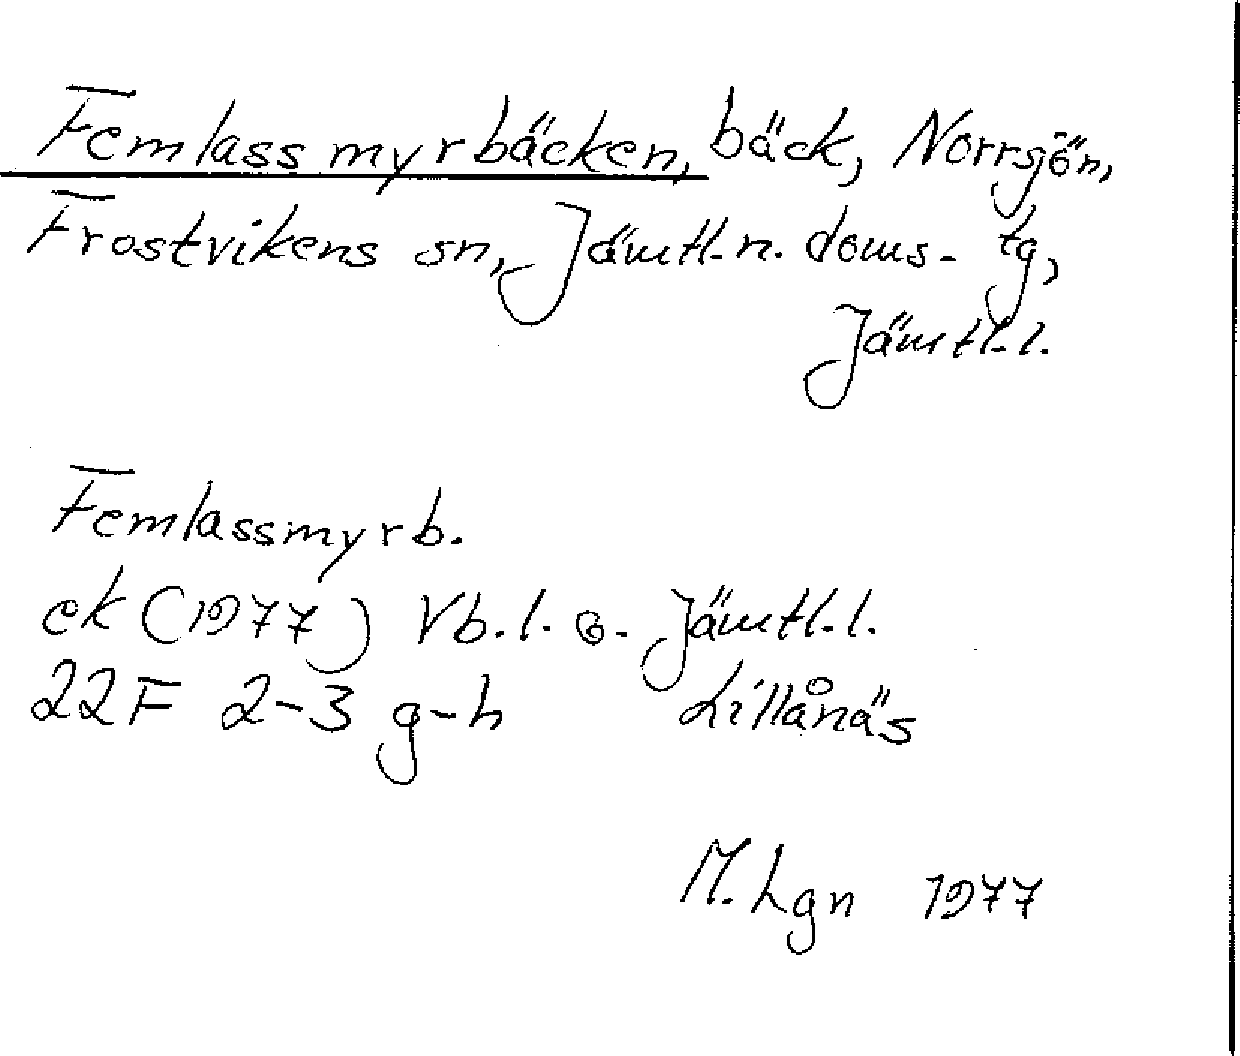 Femlassmyrbäcken, bäck, Norrsjön,
Frostvikens sn, Jämtl. n. doms. tg,
Jämtl. l.
Femlassmyrb.
ek (1977) Vb. l. o. Jämtl. l.
22F 2-3 g-h Lillånäs
M. Lgn 1977